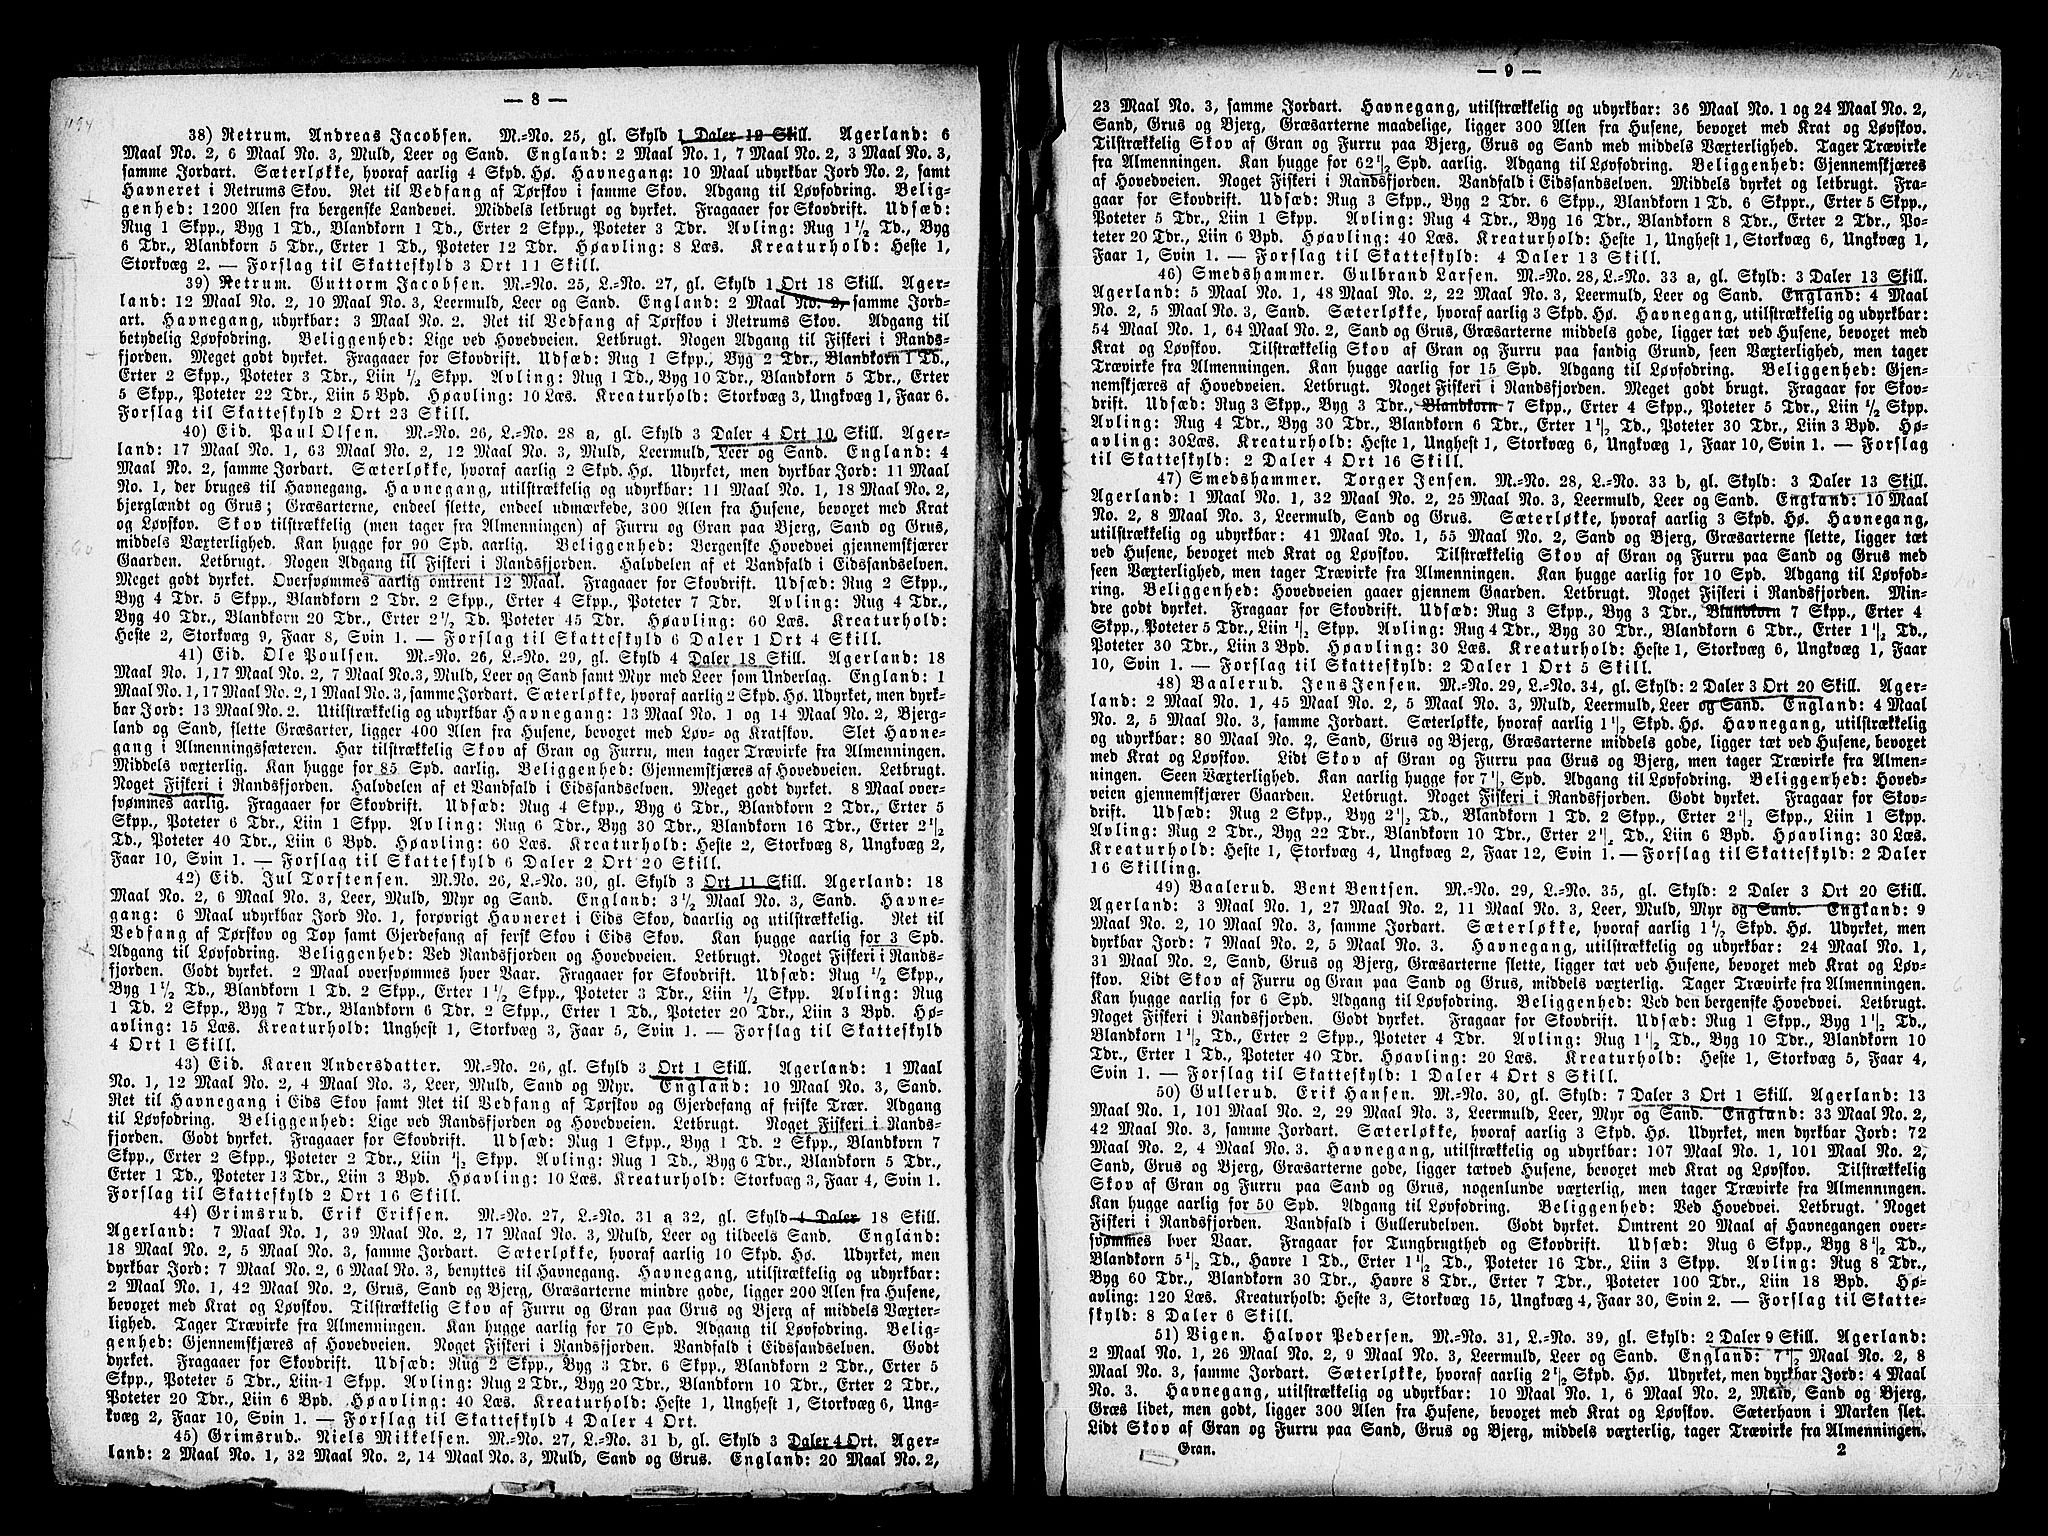 — 8 —
38) Retrum. Andreas Jacobsen. M.-No. 25, gl. Skyld 1 Daler 12 Skill. Agerland: 6
Maal No. 2, 6 Maal No. 3, Muld, Leer og Sand. England: 2 Maal No. 1, 7 Maal No. 2, 3 Maal No. 3,
samme Jordart. Sæterløkke, hvoraf aarlig 4 Skpd. Hø. Havnegang: 10 Maal udyrkbar Jord No. 2, samt
Havneret i Retrums Skov. Ret til Vedfang af Tørskov i samme Skov. Adgang til Løvfodring. Belig-
genhed: 1200 Alen fra bergenske Landevei. Middels letbrugt og dyrket. Fragaaer for Skovdrift. Udsæd:
Rug 1 Skpp., Byg 1 Td., Blandkorn 1 Td., Erter 2 Skpp., Poteter 3 Tdr. Avling: Rug 1½ Td., Byg
6 Tdr., Blandkorn 5 Tdr., Erter 1 Td., Poteter 12 Tdr. Høavling: 8 Læs. Kreaturhold: Heste 1,
Storkvæg 2. — Forslag til Skatteskyld 3 Ort 11 Skill.
39) Retrum. Guttorm Jacobsen. M.-No. 25, L.-No. 27, gl. Skyld 1 Ort 18 Skill. Ager-
land: 12 Maal No. 2, 10 Maal No. 3, Leermuld, Leer og Sand. England: 2 Maal No. 2, samme Jord-
art. Havnegang, udyrkbar: 3 Maal No. 2. Ret til Vedfang af Tørskov i Retrums Skov. Adgang til
betydelig Løvfodring. Beliggenhed: Lige ved Hovedveien. Letbrugt. Nogen Adgang til Fiskeri i Rands-
fjorden. Meget godt dyrket. Fragaaer for Skovdrift. Udsæd: Rug 1 Skpp., Byg 2 Tdr., Blandkorn 1 Td.,
Erter 2 Skpp., Poteter 3 Tdr., Liin ½ Skpp. Avling: Rug 1 Td., Byg 10 Tdr., Blandkorn 5 Tdr., Erter
5 Skpp., Poteter 22 Tdr., Liin 5 Bpd. Høavling: 10 Læs. Kreaturhold: Storkvæg 3, Ungkvæg 1, Faar 6.
Forslag til Skatteskyld 2 Ort 23 Skill.
40) Eid. Paul Olsen. M.-No. 26, L.-No. 28 a, gl. Skyld 3 Daler 4 Ort 10 Skill. Ager-
land: 17 Maal No. 1, 63 Maal No. 2, 12 Maal No. 3, Muld, Leermuld, Leer og Sand. England: 4
Maal No. 2, samme Jordart. Sæterløkke, hvoraf aarlig 2 Skpd. Hø. Udyrket, men dyrkbar Jord: 11 Maal
No. 1, der bruges til Havnegang. Havnegang, utilstrækkelig og udyrkbar: 11 Maal No. 1, 18 Maal No. 2,
bjerglændt og Grus; Græsarterne, endeel slette, endeel udmærkede, 300 Alen fra Husene, bevoxet med Krat
og Løvskov. Skov tilstrækkelig (men tager fra Almenningen) af Furru og Gran paa Bjerg, Sand og Grus,
middels Væxterlighed. Kan hugge for 90 Spd. aarlig. Beliggenhed: Bergenske Hovedvei gjennemskjærer
Gaarden. Letbrugt. Nogen Adgang til Fiskeri i Randsfjorden. Halvdelen af et Vandfald i Eidssandselven.
Meget godt dyrket. Oversvømmes aarlig omtrent 12 Maal. Fragaaer for Skovdrift. Udsæd: Rug 2 Skpp.,
Byg 4 Tdr. 5 Skpp., Blandkorn 2 Tdr. 2 Skpp., Erter 4 Skpp., Poteter 7 Tdr. Avling: Rug 4 Tdr.,
Byg 40 Tdr., Blandkorn 20 Tdr., Erter 2½ Td. Poteter 45 Tdr. Høavling: 60 Læs. Kreaturhold:
Heste 2, Storkvæg 9, Faar 8, Svin 1. — Forslag til Skatteskyld 6 Daler 1 Ort 4 Skill.
41) Eid. Ole Poulsen. M.-No. 26, L.-No. 29, gl. Skyld 4 Daler 18 Skill. Agerland: 18
Maal No. 1, 17 Maal No. 2, 7 Maal No. 3, Muld, Leer og Sand samt Myr med Leer som Underlag. England: 1
Maal No. 1, 17 Maal No. 2, 1 Maal No. 3, samme Jordart. Sæterløkke, hvoraf aarlig 2 Skpd. Hø. Udyrket, men dyrk-
bar Jord: 13 Maal No. 2. Utilstrækkelig og udyrkbar Havnegang: 13 Maal No. 1 og 14 Maal No. 2, Bjerg-
land og Sand, slette Græsarter, ligger 400 Alen fra Husene, bevoxet med Løv- og Kratskov. Slet Havne-
gang i Almenningsfæteren. Har tilstrækkelig Skov af Gran og Furru, men tager Trævirke fra Almenningen.
Middels væxterlig. Kan hugge for 85 Spd. aarlig. Beliggenhed: Gjennemskjæres af Hovedveien. Letbrugt.
Noget Fiskeri i Randsfjorden. Halvdelen af et Vandfald i Eidssandselven. Meget godt dyrket. 8 Maal over-
svømmes aarlig. Fragaaer for Skovdrift. Udsæd: Rug 4 Skpp., Byg 6 Tdr., Blandkorn 2 Tdr., Erter 5
Skpp., Poteter 6 Tdr., Liin 1 Skpp. Avling: Rug 6 Tdr., Byg 30 Tdr., Blandkorn 16 Tdr., Erter 2½
Td., Poteter 40 Tdr., Liin 6 Bpd. Høavling: 60 Læs. Kreaturhold: Heste 2, Storkvæg 8, Ungkvæg 2,
Faar 10, Svin 1. — Forslag til Skatteskyld 6 Daler 2 Ort 20 Skill.
42) Eid. Jul Torstensen. M.No. 26, L.-No. 30, gl. Skyld 3 Ort 11 Skill. Agerland: 18
Maal No. 2, 6 Maal No. 3, Leer, Muld, Myr og Sand. England: 3½ Maal No. 3, Sand. Havne-
gang: 6 Maal udyrkbar Jord No. 1, forøvrigt Havneret i Eids Skov, daarlig og utilstrækkelig. Ret til
Vedfang af Tørskov og Top samt Gjerdefang af fersk Skov i Eids Skov. Kan hugge aarlig for 3 Spd.
Adgang til Løvfodring. Beliggenhed: Ved Randsfjorden og Hovedveien. Letbrugt. Noget Fiskeri i Rands-
fjorden. Godt dyrket. 2 Maal oversvømmes hver Vaar. Fragaaer for Skovdrift. Udsæd: Rug ½ Skpp.,
Byg 1½ Td., Blandkorn 1 Td. 2 Skpp., Erter 1½ Skpp., Poteter 3 Tdr., Liin ½ Skpp. Avling: Rug
1 Td. 2 Skpp., Byg 7 Tdr., Blandkorn 6 Tdr. 2 Skpp., Erter 1 Td., Poteter 20 Tdr., Liin 3 Bpd. Hø-
avling: 15 Læs. Kreaturhold: Unghest 1, Storkvæg 3, Faar 5, Svin 1. — Forslag til Skatteskyld
4 Ort 1 Skill.
43) Eid. Karen Andersdatter. M.-No. 26, gl. Skyld 3 Ort 1 Skill. Agerland: 1 Maal
No. 1, 12 Maal No. 2, 4 Maal No. 3, Leer, Muld, Sand og Myr. England: 10 Maal No. 3, Sand.
Ret til Havnegang i Eids Skov samt Ret til Vedfang af Tørskov og Gjerdefang af friske Trær. Adgang
til Løvfodring. Beliggenhed: Lige ved Randsfjorden og Hovedveien. Letbrugt. Noget Fiskeri i Rands-
fjorden. Godt dyrket. Fragaaer for Skovdrift. Udsæd: Rug 1 Skpp., Byg 1 Td. 2 Skpp., Blandkorn 7
Skpp., Erter 2 Skpp., Poteter 2 Tdr., Liin ½ Skpp. Avling: Rug 1 Td., Byg 6 Tdr., Blandkorn 5 Tdr.,
Erter 1 Td., Poteter 13 Tdr., Liin 3 Bpd. Høavling: 10 Læs. Kreaturhold: Storkvæg 3, Faar 4, Svin 1.
Forslag til Skatteskyld 2 Ort 16 Skill.
44) Grimsrud. Erik Eriksen. M.-No. 27, L.-No. 31 a 32, gl. Skyld 4 Daler 18 Skill.
Agerland: 7 Maal No. 1, 39 Maal No. 2, 17 Maal No. 3, Muld, Leer og tildeels Sand. England:
18 Maal No. 2, 5 Maal No. 3, samme Jordart. Sæterløkke, hvoraf aarlig 10 Skpd. Hø. Udyrket, men
dyrkbar Jord: 7 Maal No. 2, 6 Maal No. 3, benyttes til Havnegang. Havnegang, utilstrækkelig og udyrkbar:
2 Maal No. 1, 42 Maal No. 2, Grus, Sand og Bjerg, Græsarterne mindre gode, ligger 200 Alen fra Husene,
bevoxet med Krat og Løvskov. Tilstrækkelig Skov af Furru og Gran paa Grus og Bjerg af middels Væxter-
lighed. Tager Trævirke fra Almenningen. Kan hugge aarlig for 70 Spd. Adgang til Løvfodring. Belig-
genhed: Gjennemskjæres af Hovedveien. Noget Fiskeri i Randsfjorden. Vandfald i Eidssandselven. Godt
dyrket. Fragaaer for Skovdrift. Udsæd: Rug 2 Skpp., Byg 3 Tdr. 6 Skpp., Blandkorn 2 Tdr., Erter 5
Skpp., Poteter 5 Tdr., Liin 1 Skpp. Avling: Rug 2 Tdr., Byg 20 Tdr., Blandkorn 10 Tdr., Erter 2 Tdr.,
Poteter 20 Tdr., Liin 6 Bpd. Høavling: 40 Læs. Kreaturhold: Heste 1, Unghest 1, Storkvæg 6, Ung-
kvæg 2, Faar 10, Svin 1. — Forslag til Skatteskyld 4 Daler 4 Ort.
45) Grimsrud. Niels Mikkelsen. M.-No. 27, L.-No. 31 b, gl. Skyld 3 Daler 4 Ort. Ager-
land: 2 Maal No. 1, 32 Maal No. 2, 14 Maal No. 3, Muld, Sand og Grus. England: 20 Maal No. 2,
— 9 —
23 Maal No. 3, samme Jordart. Havnegang, utilstrækkelig og udyrkbar: 36 Maal No. 1 og 24 Maal No. 2,
Sand, Grus og Bjerg, Græsarterne maadelige, ligger 300 Alen fra Husene, bevoxet med Krat og Løvskov.
Tilstrækkelig Skov af Gran og Furru paa Bjerg, Grus og Sand med middels Væxterlighed. Tager Trævirke
fra Almenningen. Kan hugge for 62½ Spd. aarlig. Adgang til Løvfodring. Beliggenhed: Gjennemskjæres
af Hovedveien. Noget Fiskeri i Randsfjorden. Vandfald i Eidssandselven. Middels dyrket og letbrugt. Fra-
gaar for Skovdrift. Udsæd: Rug 3 Skpp., Byg 2 Tdr. 6 Skpp., Blandkorn 1 Td. 6 Skppr., Erter 5 Skpp.,
Poteter 5 Tdr., Liin 1 Skpp. Avling: Rug 4 Tdr., Byg 16 Tdr., Blandkorn 8 Tdr., Erter 2 Tdr., Po-
teter 20 Tdr., Liin 6 Bpd. Høavling: 40 Læs. Kreaturhold: Heste 1, Unghest 1, Storkvæg 6, Ungkvæg 1,
Faar 1, Svin 1. — Forslag til Skatteskyld: 4 Daler 13 Skill.
46) Smedshammer. Gulbrand Larsen. M.-No. 28, L.-No. 33 a, gl. Skyld: 3 Daler 13 Skill.
Agerland: 5 Maal No. 1, 48 Maal No. 2, 22 Maal No. 3, Leermuld, Leer og Sand. England: 4 Maal
No. 2, 5 Maal No. 3, Sand. Sæterløkke, hvoraf aarlig 3 Spd. Hø. Havnegang, utilstrækkelig og udyrkbar:
54 Maal No. 1, 64 Maal No. 2, Sand og Grus, Græsarterne middels gode, ligger tæt ved Husene, bevoxet med
Krat og Løvskov. Tilstrækkelig Skov af Gran og Furru paa sandig Grund, seen Væxterlighed, men tager
Trævirke fra Almenningen. Kan hugge aarlig for 15 Spd. Adgang til Løvfodring. Beliggenhed: Gjen-
nemskjæres af Hovedveien. Letbrugt. Noget Fiskeri i Randsfjorden. Meget godt brugt. Fragaar for Skov-
drift. Udsæd: Rug 3 Skpp., Byg 3 Tdr., Blandkorn 7 Skpp., Erter 4 Skpp., Poteter 5 Tdr., Liin ½ Skpp.
Avling: Rug 4 Tdr., Byg 30 Tdr., Blandkorn 6 Tdr., Erter 1½ Td., Poteter 30 Tdr., Liin 3 Bpd. Hø-
avling: 30 Læs. Kreaturhold: Heste 1, Unghest 1, Storkvæg 6, Ungkvæg 1, Faar 10, Svin 1. — Forslag
til Skatteskyld: 2 Daler 4 Ort 16 Skill.
47) Smedshammer. Torger Jensen. M.-No. 28, L.-No. 33 b, gl. Skyld: 3 Daler 13 Skill.
Agerland: 1 Maal No. 1, 32 Maal No. 2, 25 Maal No. 3, Leermuld, Leer og Sand. England: 10 Maal
No. 2, 8 Maal No. 3, Leermuld, Sand og Grus. Sæterløkke, hvoraf aarlig 3 Skpd. Hø. Havnegang,
utilstrækkelig og udyrkbar: 41 Maal No. 1, 55 Maal No. 2, Sand og Bjerg, Græsarterne slette, ligger tæt
ved Husene, bevoxet med Krat og Løvskov. Tilstrækkelig Skov af Gran og Furru paa Sand og Grus med
seen Væxterlighed, men tager Trævirke fra Almenningen. Kan hugge aarlig for 10 Spd. Adgang til Løvfod-
ring. Beliggenhed: Hovedveien gaaer gjennem Gaarden. Letbrugt. Noget Fiskeri i Randsfjorden. Min-
dre godt dyrket. Fragaaer for Skovdrift. Udsæd: Rug 3 Skpp., Byg 3 Tdr., Blandkorn 7 Skpp., Erter 4
Skpp., Poteter 5 Tdr., Liin ½ Skpp. Avling: Rug 4 Tdr., Byg 30 Tdr., Blandkorn 6 Tdr., Erter 1½ Td.,
Poteter 30 Tdr., Liin 3 Bpd. Høavling: 30 Læs. Kreaturhold: Heste 1, Storkvæg 6, Ungkvæg 1, Faar
10, Svin 1. — Forslag til Skatteskyld: 2 Daler 1 Ort 5 Skill.
48) Baalerud. Jens Jensen. M.-No. 29, L.-No. 34, gl. Skyld: 2 Daler 3 Ort 20 Skill. Ager-
land: 2 Maal No. 1, 45 Maal No. 2, 5 Maal No. 3, Muld, Leermuld, Leer og Sand. England: 4 Maal
No. 2, 5 Maal No. 3, samme Jordart. Sæterløkke, hvoraf aarlig 1½ Spd. Hø. Havnegang, utilstrækkelig
og udyrkbar: 80 Maal No. 2, Sand, Grus og Bjerg, Græsarterne middels gode, ligger tæt ved Husene, bevoxet
med Krat og Løvskov. Lidt Skov af Gran og Furru paa Grus og Bjerg, men tager Trævirke fra Almen-
ningen. Seen Væxterlighed. Kan aarlig hugge for 7½ Spd. Adgang til Løvfodring. Beliggenhed: Hoved-
veien gjennemskjærer Gaarden. Letbrugt. Noget Fiskeri i Randsfjorden. Godt dyrket. Fragaar for Skov-
drift. Udsæd: Rug 2 Skpp., Byg 2½ Td., Blandkorn 1 Td. 2 Skpp., Erter 2½ Skpp., Liin 1 Skpp.
Avling: Rug 2 Tdr., Byg 22 Tdr., Blandkorn 10 Tdr., Erter 2½ Td., Liin 6 Bpd. Høavling: 30 Læs.
Kreaturhold: Heste 1, Storkvæg 4, Ungkvæg 2, Faar 12, Svin 1. — Forslag til Skatteskyld: 2 Daler
16 Skilling.
49) Baalerud. Bent Bentsen. M.-No. 29, L.-No. 35, gl. Skyld: 2 Daler 3 Ort 20 Skill.
Agerland: 3 Maal No. 1, 27 Maal No. 2, 11 Maal No. 3, Leer, Muld, Myr og Sand. England: 9
Maal No. 2, 10 Maal No. 3, samme Jordart. Sæterløkke, hvoraf aarlig 1½ Skpd. Hø. Udyrket, men
dyrkbar Jord: 7 Maal No. 2, 5 Maal No. 3. Havnegang, utilstrækkelig og udyrkbar: 24 Maal No. 1,
31 Maal No. 2, Sand, Grus og Bjerg, Græsarterne slette, ligger tæt ved Husene, bevoxet med Krat og Løv-
skov. Lidt Skov af Furru og Gran paa Sand og Grus, middels væxterlig. Tager Trævirke fra Almenningen.
Kan hugge aarlig for 6 Spd. Adgang til Løvfodring. Beliggenhed: Ved den bergenske Hovedvei. Letbrugt.
Noget Fiskeri i Randsfjorden. Godt dyrket. Fragaar for Skovdrift. Udsæd: Rug 1 Skpp., Byg 1½ Td.,
Blandkorn 1½ Td., Erter 2 Skpp., Poteter 4 Tdr. Avling: Rug 1½ Td., Byg 12 Tdr., Blandkorn 10
Tdr., Erter 1 Td., Poteter 40 Tdr. Høavling: 20 Læs. Kreaturhold: Heste 1, Storkvæg 5, Faar 4,
Svin 1. — Forslag til Skatteskyld: 1 Daler 4 Ort 8 Skill.
50) Gullerud. Erik Hansen. M.-No. 30, gl. Skyld: 7 Daler 3 Ort 1 Skill. Agerland: 13
Maal No. 1, 101 Maal No. 2, 29 Maal No. 3, Leermuld, Leer, Myr og Sand. England: 33 Maal No. 2,
42 Maal No. 3, samme Jordart. Sæterløkke, hvoraf aarlig 3 Skpd. Hø. Udyrket, men dyrkbar Jord: 72
Maal No. 2, 4 Maal No. 3. Havnegang, utilstrækkelig og udyrkbar: 107 Maal No. 1, 101 Maal No. 2,
Sand, Grus og Bjerg, Græsarterne gode, ligger tætved Husene, bevoxet med Krat og Løvskov. Tilstrækkelig
Skov af Gran og Furru paa Sand og Grus, nogenlunde væxterlig, men tager Trævirke fra Almenningen.
Kan hugge aarlig for 50 Spd. Adgang til Løvfodring. Beliggenhed: Ved Hovedvei. Letbrugt. Noget
Fiskeri i Randsfjorden. Vandfald i Gullerudelven. Godt dyrket. Omtrent 20 Maal af Havnegangen over-
svømmes hver Vaar. Fragaar for Tungbrugthed og Skovdrift. Udsæd: Rug 6 Skpp., Byg 8½ Td.,
Blandkorn 5½ Td., Havre 1 Td., Erter 1½ Td., Poteter 16 Tdr., Liin 3 Skpp. Avling: Rug 8 Tdr.,
Byg 60 Tdr., Blandkorn 30 Tdr., Havre 8 Tdr., Erter 7 Tdr., Poteter 100 Tdr., Liin 18 Bpd. Hø-
avling: 120 Læs. Kreaturhold: Heste 3, Storkvæg 15, Ungkvæg 4, Faar 30, Svin 2. — Forslag til Skatte-
skyld: 8 Daler 6 Skill.
51) Vigen. Halvor Pedersen. M.-No. 31, L.-No. 39, gl. Skyld: 2 Daler 9 Skill. Agerland:
2 Maal No. 1, 26 Maal No. 2, 9 Maal No. 3, Leermuld, Leer og Sand. England: 7½ Maal No. 2, 8
Maal No. 3, samme Jordart. Sæterløkke, hvoraf aarlig 2½ Skpd. Hø. Udyrket, men dyrkbar Jord: 4 Maal
No. 3. Havnegang, utilstrækkelig og udyrkbar: 10 Maal No. 1, 6 Maal No. 2, Muld, Sand og Bjerg,
Græs lidet, men godt, ligger 300 Alen fra Husene, bevoxet med Krat og Løvskov. Sæterhavn i Marken slet.
Lidt Skov af Gran og Furru paa Sand, Grus og Bjerg, middels væxterlig, tager Trævirke fra Almenningen.
Gran. 2